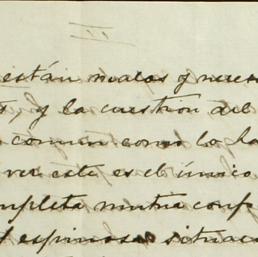 II
están malas y nues
y la cuestión del
comun como lo ha
ver este es el único
mpleta mutua conf
espinosa situac